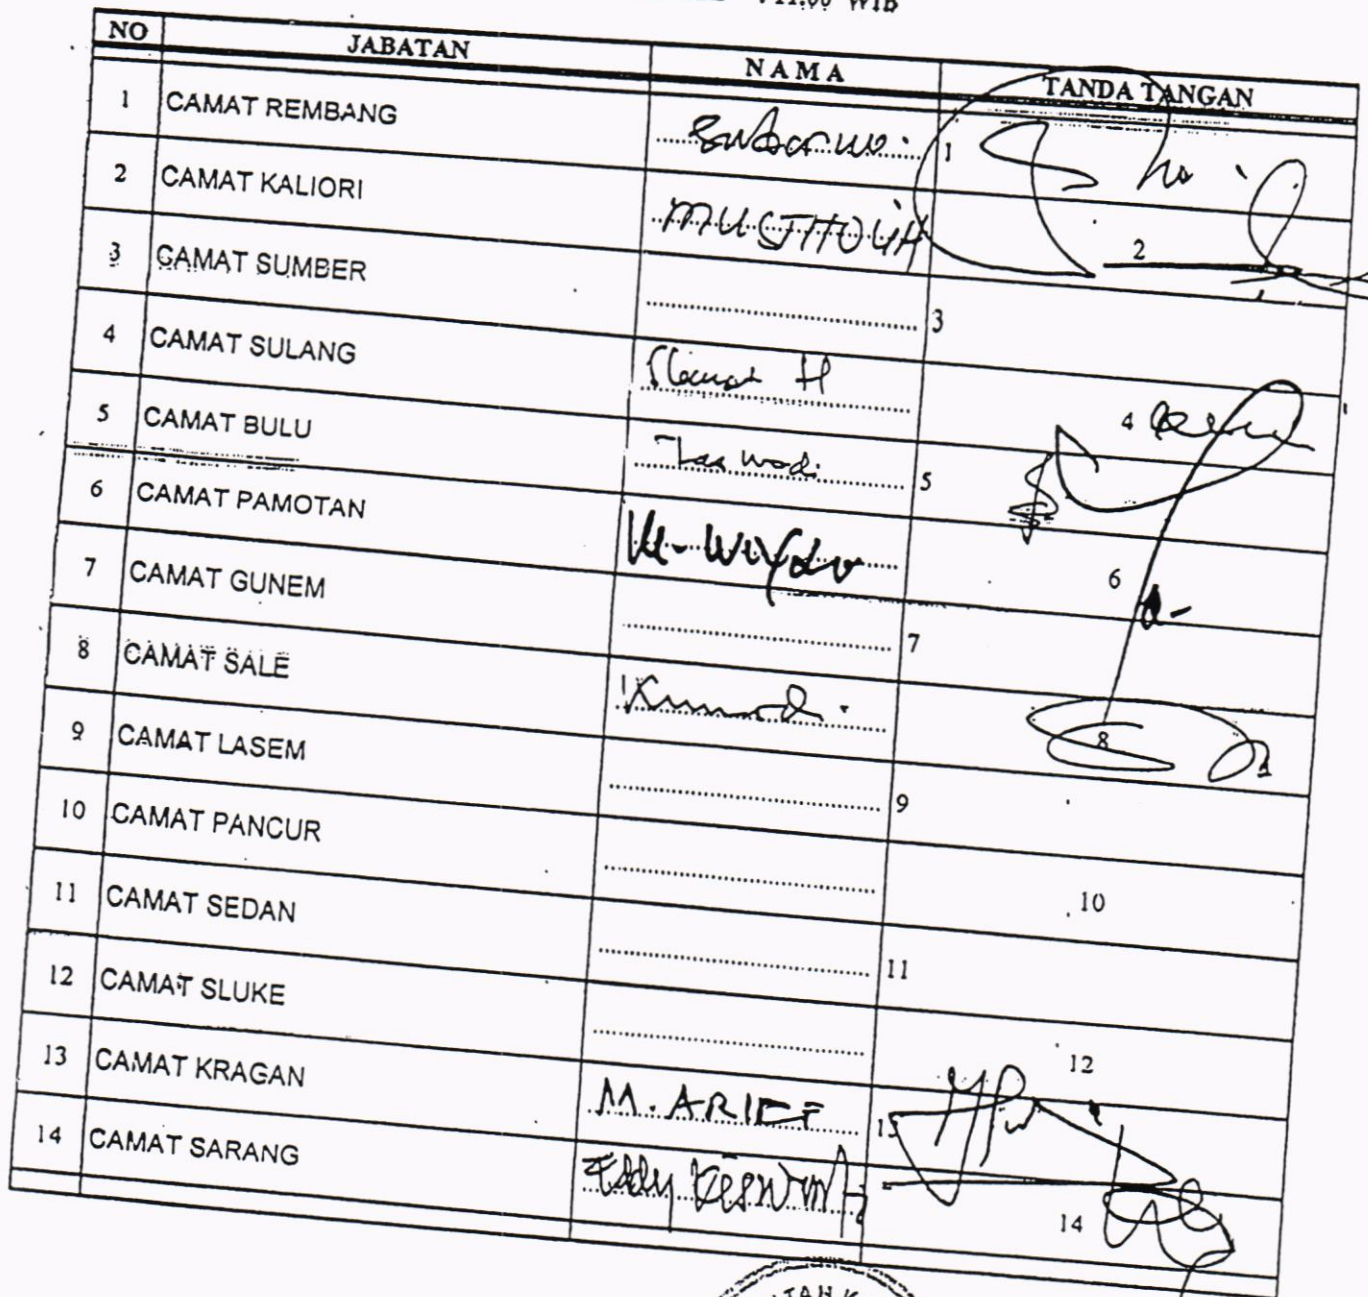 11.00 WIB
NO JABATAN NAMA TANDA TANGAN
1 CAMAT REMBANG 1
2 CAMAT KALIORI 2
3 CAMAT SUMBER 3
4 CAMAT SULANG Slamet H 4
5 CAMAT BULU 5
6 CAMAT PAMOTAN 6
7 CAMAT GUNEM 7
8 CAMAT SALE 8
9 CAMAT LASEM 9
10 CAMAT PANCUR 10
11 CAMAT SEDAN 11
12 CAMAT SLUKE 12
13 CAMAT KRAGAN M. ARIEF 13
14 CAMAT SARANG Eddy 14